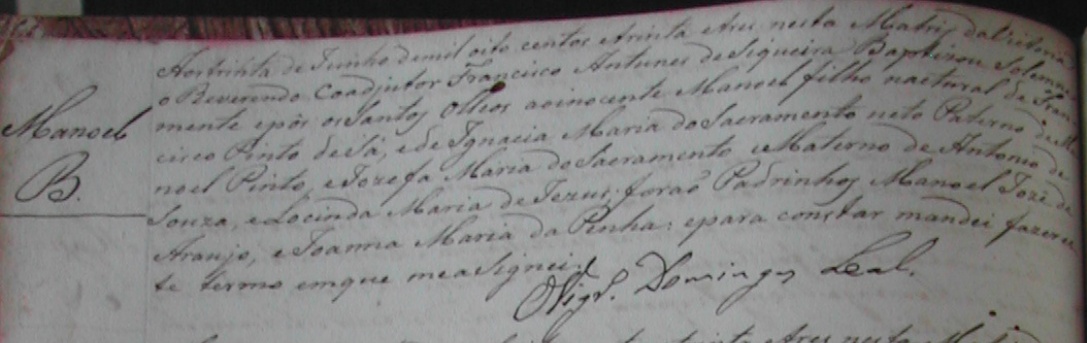 Manoel
B.
Aos trinta de Junho de mil oito centos etrinta etres nesta Matriz da Victoria
o Reverendo Coadjutor Francisco Antunes de Siqueira Baptizou Solemne
mente epôs os Santos Olleos ao innocente Manoel filho nactural de Fran
cisco Pinto de Sá, ede Ignacia Maria do Sacramento neto Paterno de Ma
noel Pinto, eJozefa Maria do Sacramento eMaterno de Antonio de
Souza, eLocinda Maria de Jezus; foraõ Padrinhos Manoel Jozé de
Araujo, eJoanna Maria da Penha: epara constar mandei fazer es
te termo emque me aSignei.
O Vigr.º Domingos Leal.